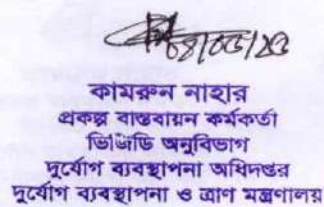 ০৪/০৬/২৩
কামরুন নাহার
প্রকল্প বাস্তবায়ন কর্মকর্তা
ভিজিডি অনুবিভাগ
দুর্যোগ ব্যবস্থাপনা অধিদপ্তর
দুর্যোগ ব্যবস্থাপনা ও ত্রাণ মন্ত্রণালয়